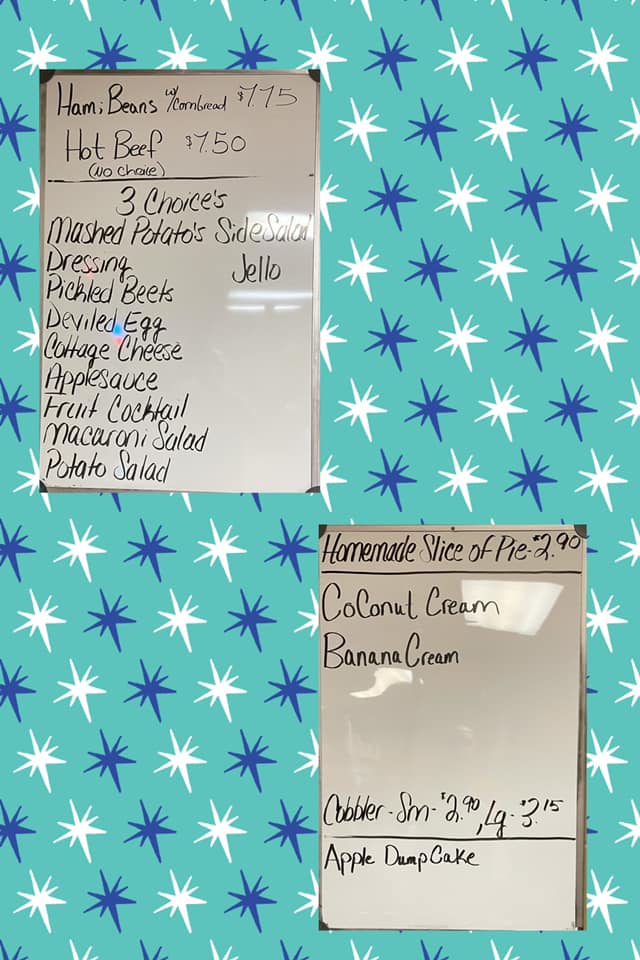 Ham & Beans w/Cornbread $7.75
Hot Beef $7.50
(No Choice)
3 Choice's
Mashed Potato's Side Salad
Dressing Jello
Pickled Beets
Deviled Egg
Cottage Cheese
Applesauce
Fruit Cocktail
Macaroni Salad
Potato Salad
Homemade Slice of Pie-$2.90
CoConut Cream
Banana Cream
Cobbler-Sm-$2.90, Lg-$3.15
Apple Dump Cake